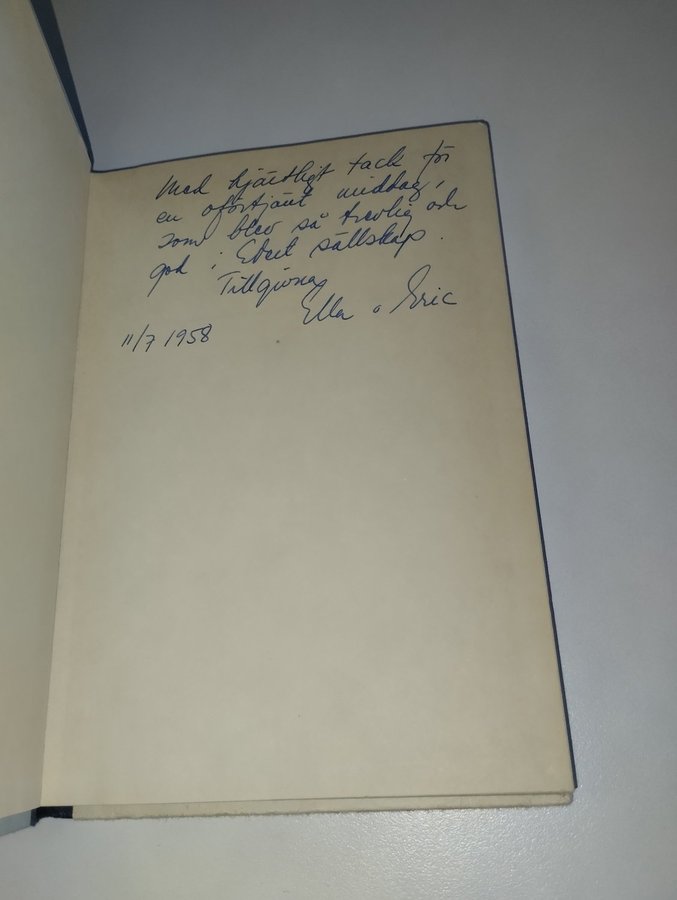 Med hjärtligt tack för
en oförtjänt middag,
som blev så trevlig och
god i Edert sällskap.
Tillgivna
Ella o Eric
11/7 1958